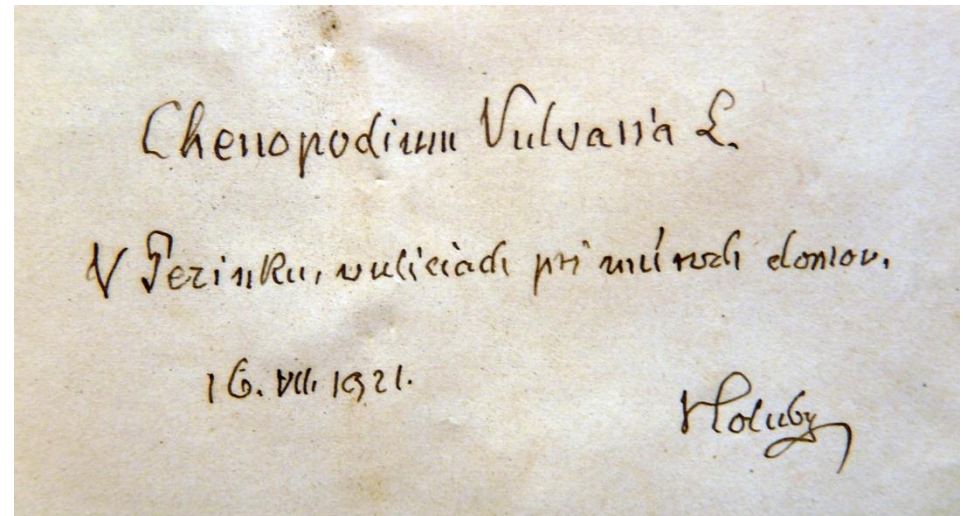 Chenopodium Vulvaria L.
V Pezinku, v uliciach pri múroch domov.
16. VII. 1921.
Holuby